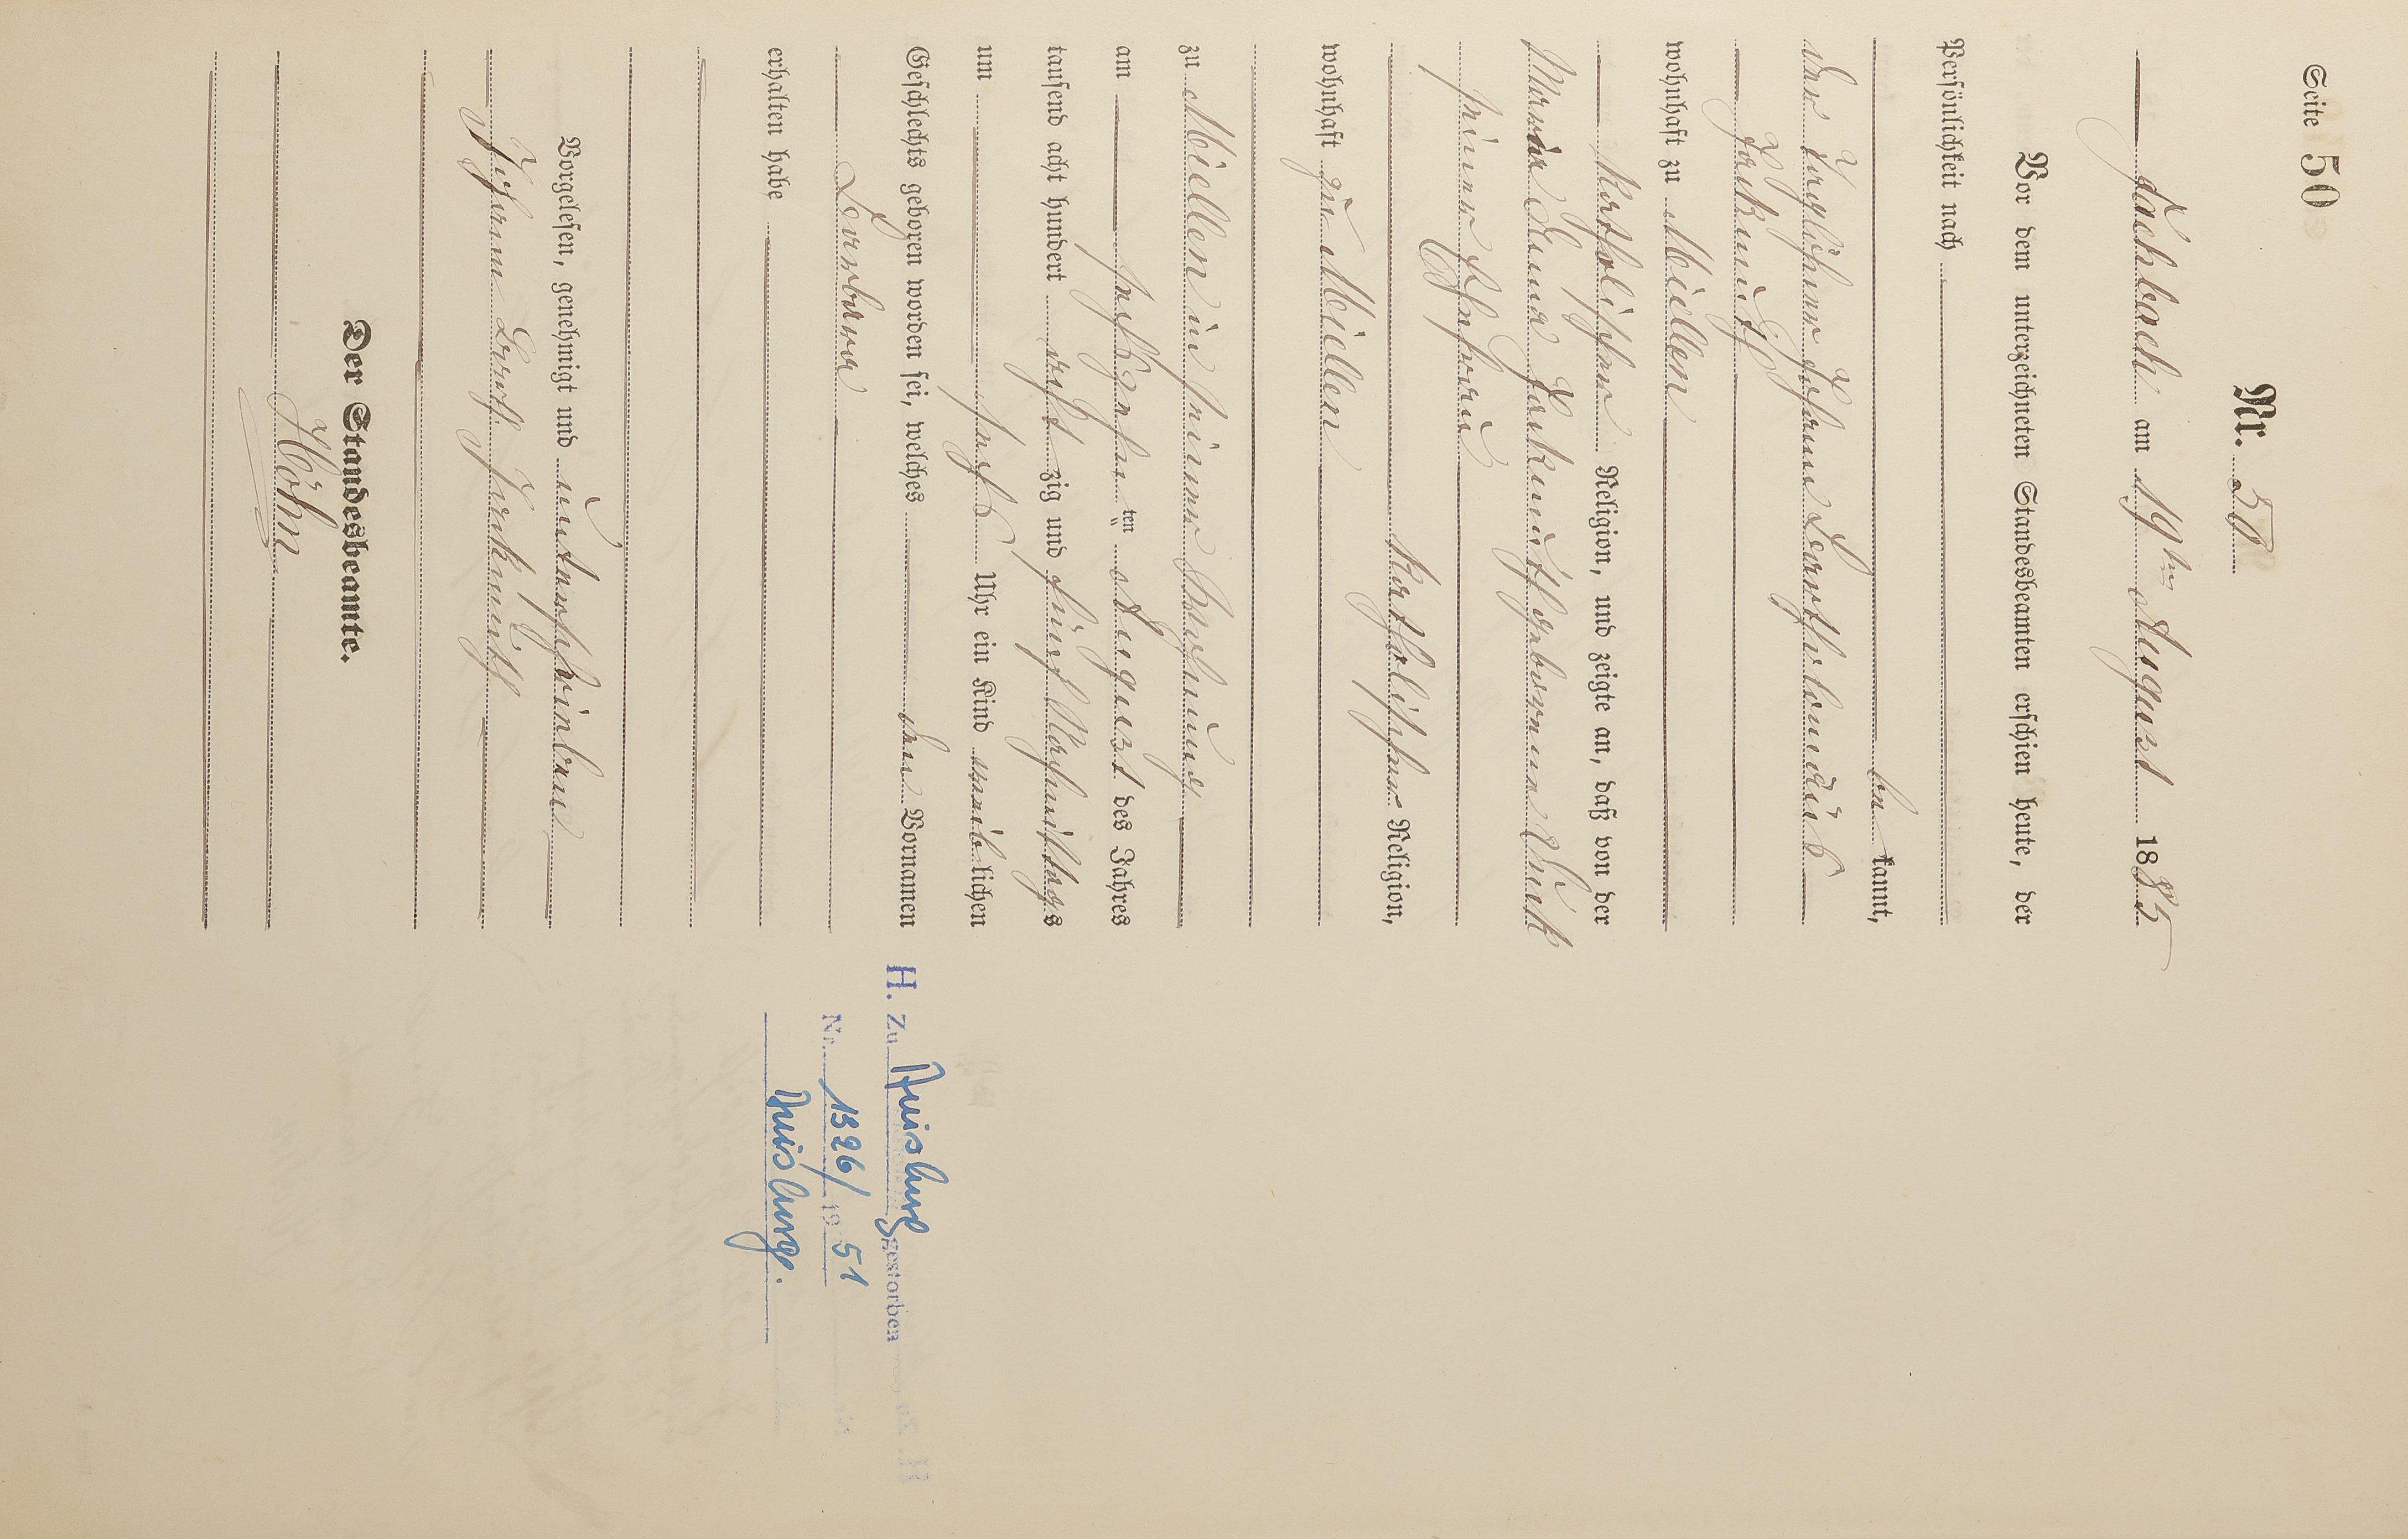 Seite 50
Nr. 50
Fachbach am 19ten August 1885
Vor dem unterzeichneten Standesbeamten erschien heute, der
Persönlichkeit nach
be kannt,
der Taglöhner Johann Bartholomäus
wohnhaft zu Miellen
katholischer Religion, und zeigte an, daß von der
Maria Anna geborenen
seiner Ehefrau
katholischer Religion,
wohnhaft zu Miellen
zu Miellen in seiner Wohnung
am sechszehn ten August des Jahres
tausend acht hundert acht zig und fünf Nachmittags
um sechs Uhr ein Kind weib lichen
Geschlechts geboren worden sei, welches den Vornamen
Barbara
erhalten habe
Vorgelesen, genehmigt und unterschrieben
Johann Barth.
Der Standesbeamte.
Höhn
H. Zu Duisburg gestorben
Nr. 1326/1951
Duisburg.